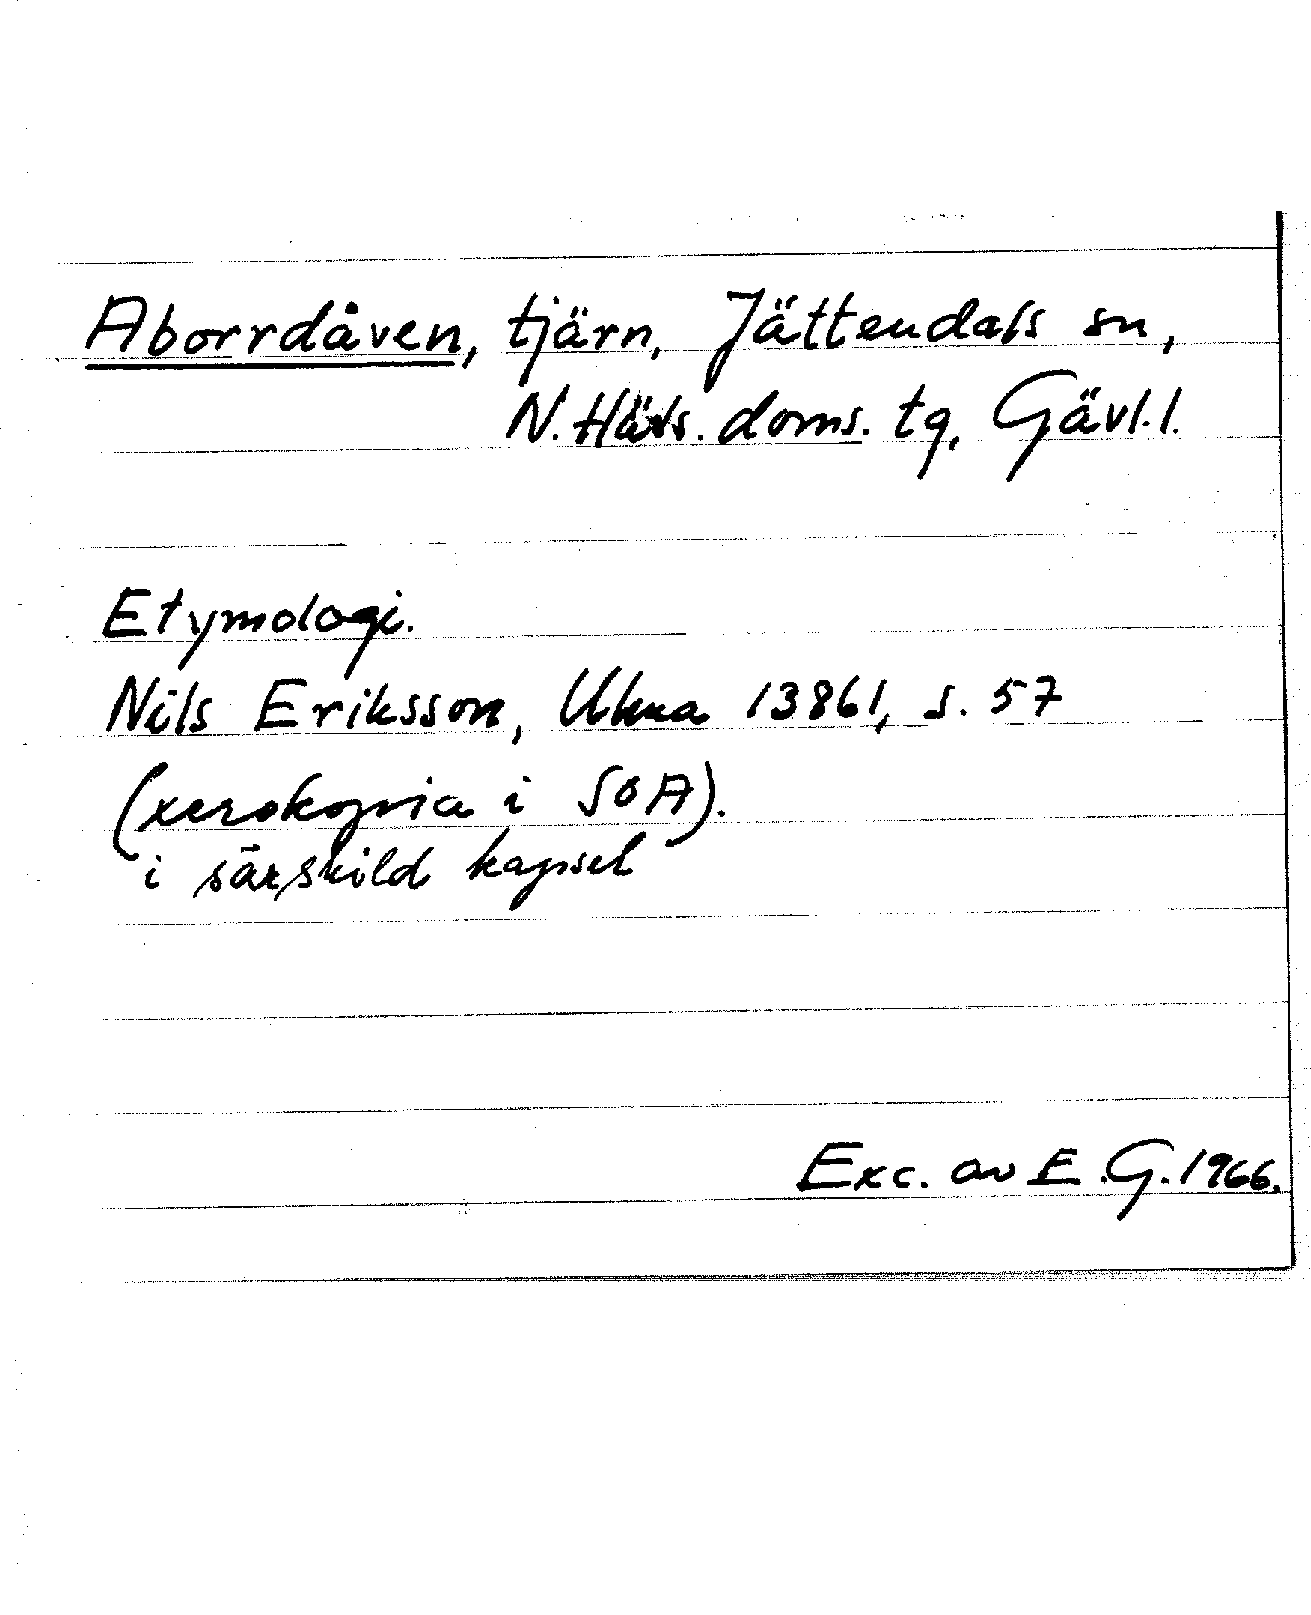 Aborrdåven, tjärn, Jättendals sn,
N. Häls. doms. tg, Gävl. l.
Etymologi.
Nils Eriksson, Ulma 13861, s. 57
(xerokopia i SOA).
i särskild kapsel
Exc. av E.G. 1966.